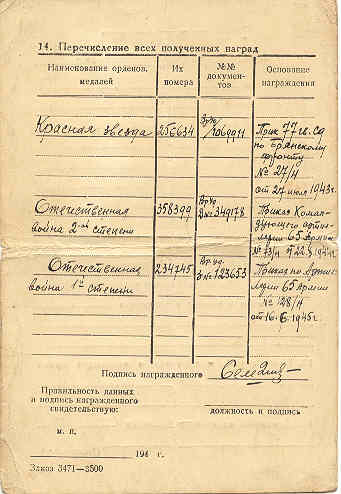 14. Перечисление всех полученных наград
Наименование орденов, медалей
Их номера
№№ документов
Основание награждения
Красная звезда
256634
Пр. 77 гв. Сд
по Брянскому
фронту
№ 27/н
от 27 июля 1943 г.
Отечественная
война 2-ой степени
358399
№ 349178
Приказ Коман-
дующего артил-
лерии 65 Армии
№ 73/н
Отечественная
война 1ой степени
234745
№ 123653
Приказ по Артил-
лерии 65 Армии
№ 128/н
от 16.6.1945 г.
Подпись награжденного
Правильность данных
и подпись награжденного
свидетельствую:
должность и подпись
м. п.
194 г.
Заказ 3471—3500